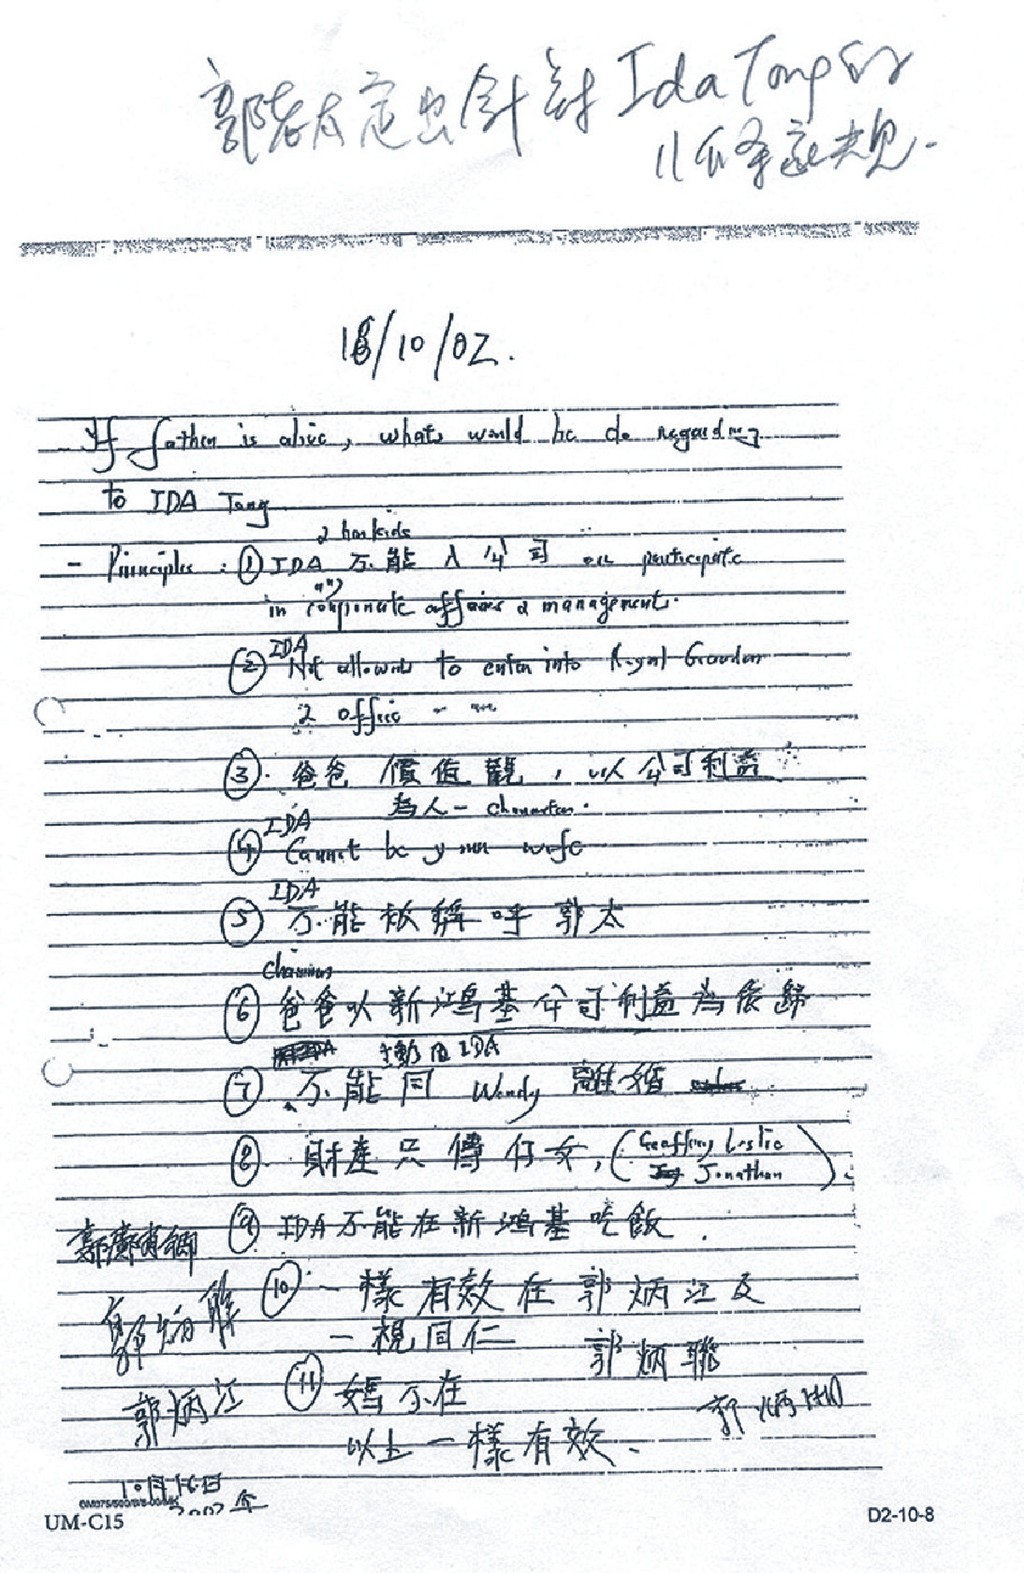 郭老太定出針對Ida Tong的
11條家規.
18/10/02.
If father is alive, whats would he do regarding
to IDA Tong
2 her kids
- Principles : ① IDA 不能入公司 or participate
in any corporate affairs & management.
② IDA Not allowed to enter into Royal Garden
2 office
③. 爸爸 價值觀，以公司利益
為人 - character.
IDA
④ Cannot be your wife
IDA
⑤ 不能被稱呼郭太
Chairman
⑥ 爸爸以新鴻基公司利益為依歸
主動因IDA
⑦ 不能同 Wendy 離婚
⑧. 財產只傳仔女, (Geoffrey Leslie
Jonathan).
⑨ IDA不能在新鴻基吃飯.
鄺肖卿
⑩ 一樣有效在郭炳江及
郭炳聯
一視同仁
郭炳聯
⑪ 媽不在
郭炳江
郭炳湘
以上一樣有效.
10月16日
2002年
UM-C15
D2-10-8